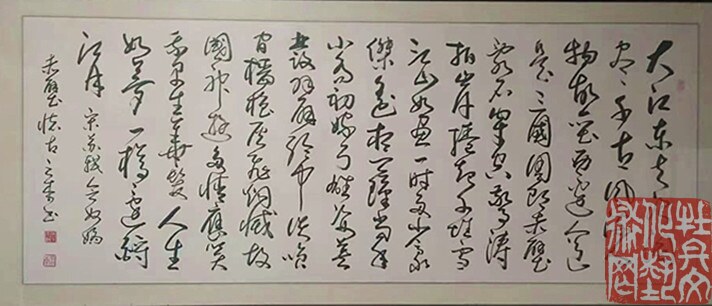 大江东去
尽千古风
物故垒西边人道
是三國周郎赤壁
乱石穿空惊涛
拍岸捲起千堆雪
江山如画一时多少豪
傑遥想公瑾当年
小乔初嫁了雄姿英
发羽扇纶巾谈笑
间樯橹灰飞烟灭故
國神遊多情應笑
我早生華发人生
如梦一樽还酹
江月 宋苏轼念奴娇
赤壁懷古